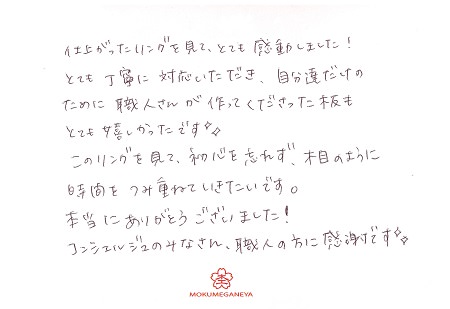 仕上がったリングを見て、とても感動しました！
とても丁寧に対応いただき、自分達だけの
ために職人さんが作ってくださった板も
とても嬉しかったです✨
このリングを見て、初心を忘れず、木目のように
時間をつみ重ねていきたいです。
本当にありがとうございました！
コンシェルジュのみなさん、職人の方に感謝です✨
MOKUMEGANEYA